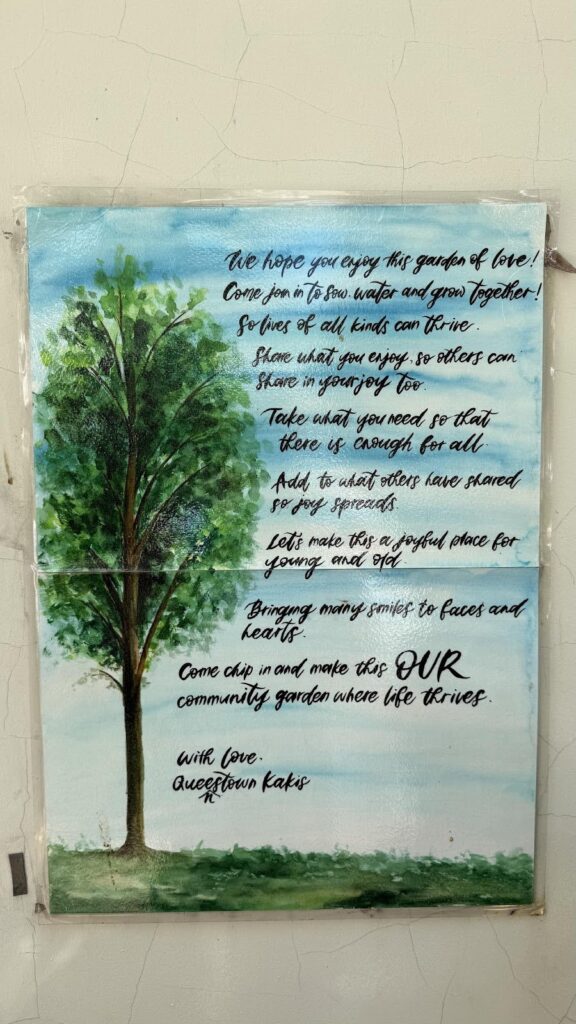 We hope you enjoy this garden of love!
Come join in to sow, water and grow together!
So lives of all kinds can thrive.
Share what you enjoy, so others can
share in your joy too.
Take what you need so that
there is enough for all
Add to what others have shared
so joy spreads.
Let's make this a joyful place for
young and old.
Bringing many smiles to faces and
hearts.
Come chip in and make this OUR
community garden where life thrives.
With love.
Queestown Kakis
n